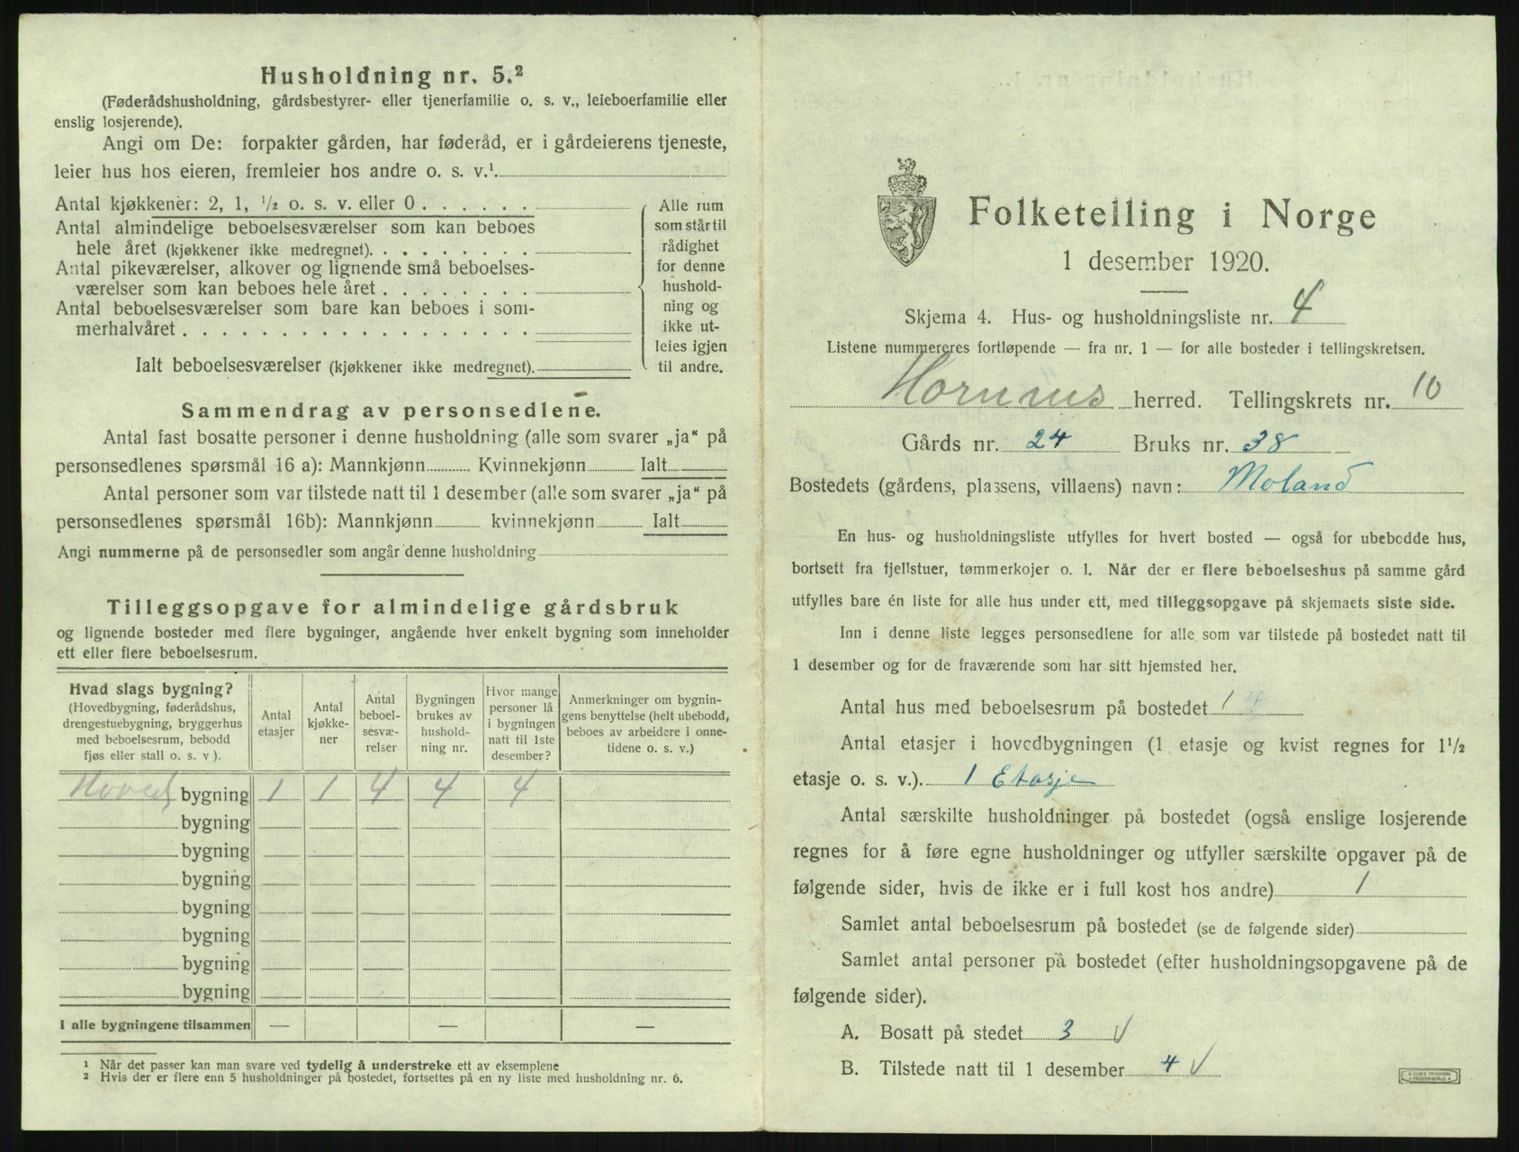 Husholdning nr. 5.²
(Føderådshusholdning, gårdsbestyrer- eller tjenerfamilie o. s. v., leieboerfamilie eller
enslig losjerende).
Angi om De: forpakter gården, har føderåd, er i gårdeierens tjeneste,
leier hus hos eieren, fremleier hos andre o. s. v.¹
Antal kjøkkener: 2, 1, ½ o. s. v. eller 0
Antal almindelige beboelsesværelser som kan beboes
hele året (kjøkkener ikke medregnet)
Antal pikeværelser, alkover og lignende små beboelses-
værelser som kan beboes hele året
Antal beboelsesværelser som bare kan beboes i som-
merhalvåret
Ialt beboelsesværelser (kjøkkener ikke medregnet)
Alle rum
som står til
rådighet
for denne
hushold-
ning og
ikke ut-
leies igjen
til andre.
Sammendrag av personsedlene.
Antal fast bosatte personer i denne husholdning (alle som svarer „ja“ på
personsedlenes spørsmål 16 a): Mannkjønn Kvinnekjønn Ialt
Antal personer som var tilstede natt til 1 desember (alle som svarer „ja“ på
personsedlenes spørsmål 16b): Mannkjønn kvinnekjønn Ialt
Angi nummerne på de personsedler som angår denne husholdning
Tilleggsopgave for almindelige gårdsbruk
og lignende bosteder med flere bygninger, angående hver enkelt bygning som inneholder
ett eller flere beboelsesrum.
Hvad slags bygning?
(Hovedbygning, føderådshus,
drengestuebygning, bryggerhus
med beboelsesrum, bebodd
fjøs eller stall o. s. v ).
Antal
etasjer
Antal
kjøkke-
ner
Antal
beboel-
sesvæ-
relser
Bygningen
brukes av
hushold-
ning nr.
Hvor mange
personer lå
i bygningen
natt til 1ste
desember?
Anmerkninger om bygnin-
gens benyttelse (helt ubebodd,
beboes av arbeidere i onne-
tidene o. s. v.)
Hoved bygning 1 1 4 4 4
bygning
bygning
bygning
bygning
bygning
bygning
bygning
I alle bygningene tilsammen — — —
¹ Når det passer kan man svare ved tydelig å understreke ett av eksemplene
² Hvis der er flere enn 5 husholdninger på bostedet, fortsettes på en ny liste med husholdning nr. 6.
Folketelling i Norge
1 desember 1920.
Skjema 4. Hus- og husholdningsliste nr. 4
Listene nummereres fortløpende — fra nr. 1 — for alle bosteder i tellingskretsen.
Hornnes herred. Tellingskrets nr. 10
Gårds nr. 24 Bruks nr. 38
Bostedets (gårdens, plassens, villaens) navn: Moland
En hus- og husholdningsliste utfylles for hvert bosted — også for ubebodde hus,
bortsett fra fjellstuer, tømmerkojer o. l. Når der er flere beboelseshus på samme gård
utfylles bare én liste for alle hus under ett, med tilleggsopgave på skjemaets siste side.
Inn i denne liste legges personsedlene for alle som var tilstede på bostedet natt til
1 desember og for de fraværende som har sitt hjemsted her.
Antal hus med beboelsesrum på bostedet 1
Antal etasjer i hovedbygningen (1 etasje og kvist regnes for 1½
etasje o. s. v.). 1 Etasje
Antal særskilte husholdninger på bostedet (også enslige losjerende
regnes for å føre egne husholdninger og utfyller særskilte opgaver på de
følgende sider, hvis de ikke er i full kost hos andre) 1
Samlet antal beboelsesrum på bostedet (se de følgende sider)
Samlet antal personer på bostedet (efter husholdningsopgavene på de
følgende sider).
A. Bosatt på stedet 3 √
B. Tilstede natt til 1 desember 4 √